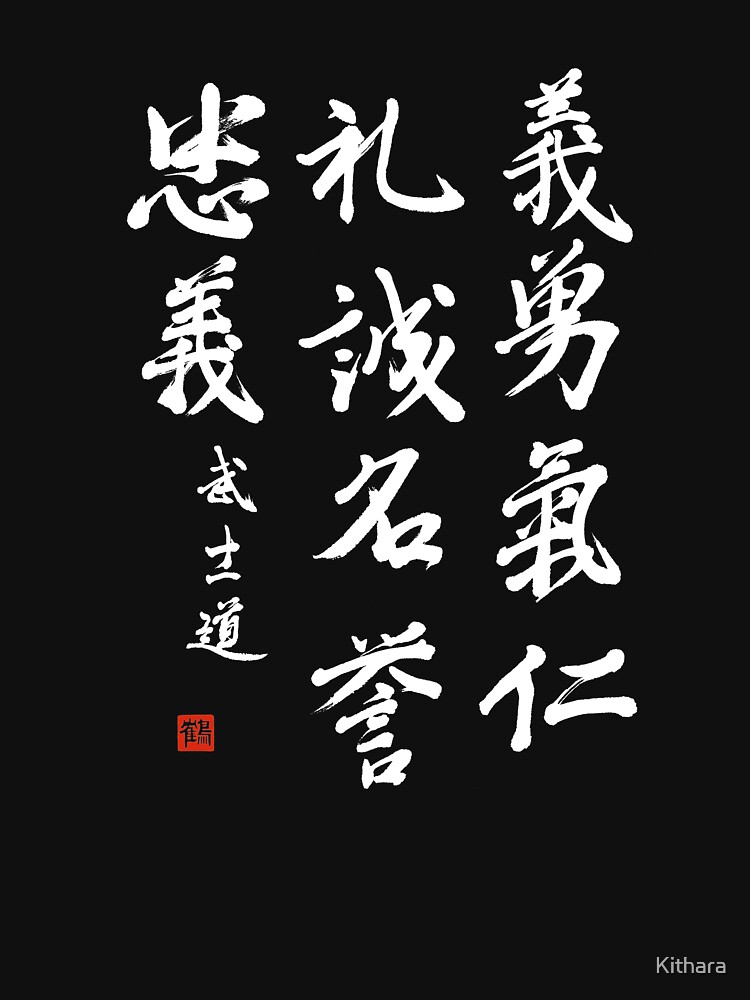 義勇氣仁
礼誠名誉
忠義
武士道
鶴
Kithara